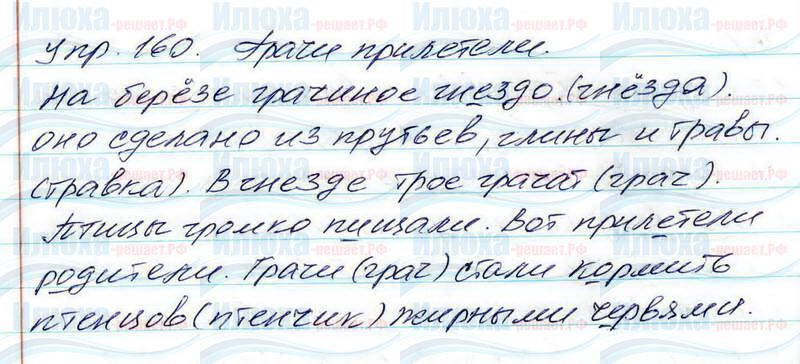 Упр. 160. Грачи прилетели.
На берёзе грачиное гнездо. (гнёзда).
оно сделано из прутьев, глины и травы.
(травка). В гнезде трое грачат (грач).
Птицы громко пищали. Вот прилетели
родители. Грачи (грач) стали кормить
птенцов (птенчик) жирными червями.